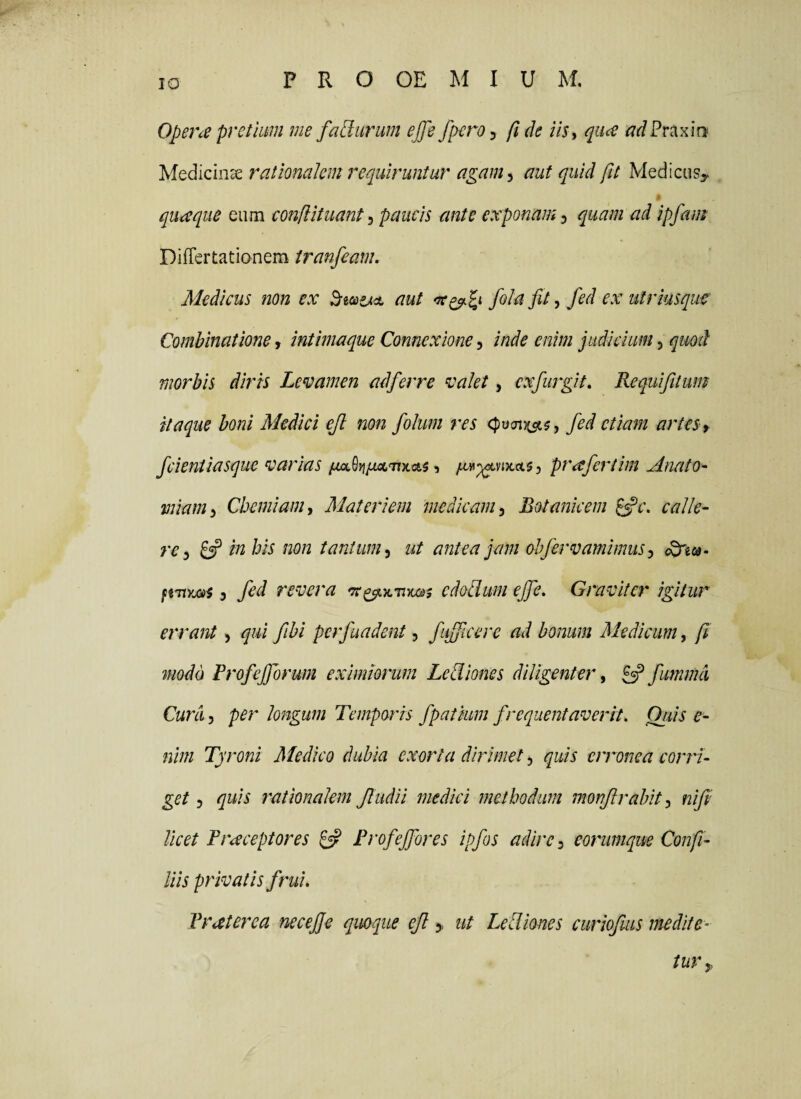 10 PROOEMIUM.
Operæ pretium me facturum esse spero, si de iis, quæ ad Praxin
Medicinæ rationalem requiruntur agam, aut quid sit Medicus,
quæque eum constituant, paucis ante exponam, quam ad ipsam
Dissertationem transeam.
Medicus non ex θεωρια aut πραξι sola fit, sed ex utriusque
Combinatione, intimaque Connexione, inde enim judicium, quod
morbis diris Levamen adferre valet, exsurgit. Requisitum
itaque boni Medici est non solum res φυσικας, sed etiam artes,
scientiasque varias μαθηματικας, μηχανικας, præsertim Anato-
miam, Chemiam, Materiem medicam, Botanicem &c. calle-
re, & in his non tantum, ut antea jam observamimus, θεω-
ρετικως, sed revera πρακτικως edoctum esse. Graviter igitur
errant, qui sibi persuadent, sufficere ad bonum Medicum, si
modò Professorum eximiorum Lectiones diligenter, & summâ
Curâ, per longum Temporis spatium frequentaverit. Quis e-
nim Tyroni Medico dubia exorta dirimet, quis erronea corri-
get, quis rationalem studii medici methodum monstrabit, nisi
licet Præceptores & Professores ipsos adire, eorumque Consi-
liis privatis frui.
Præterea necesse quoque est, ut Lectiones curiosius medite-
tur,